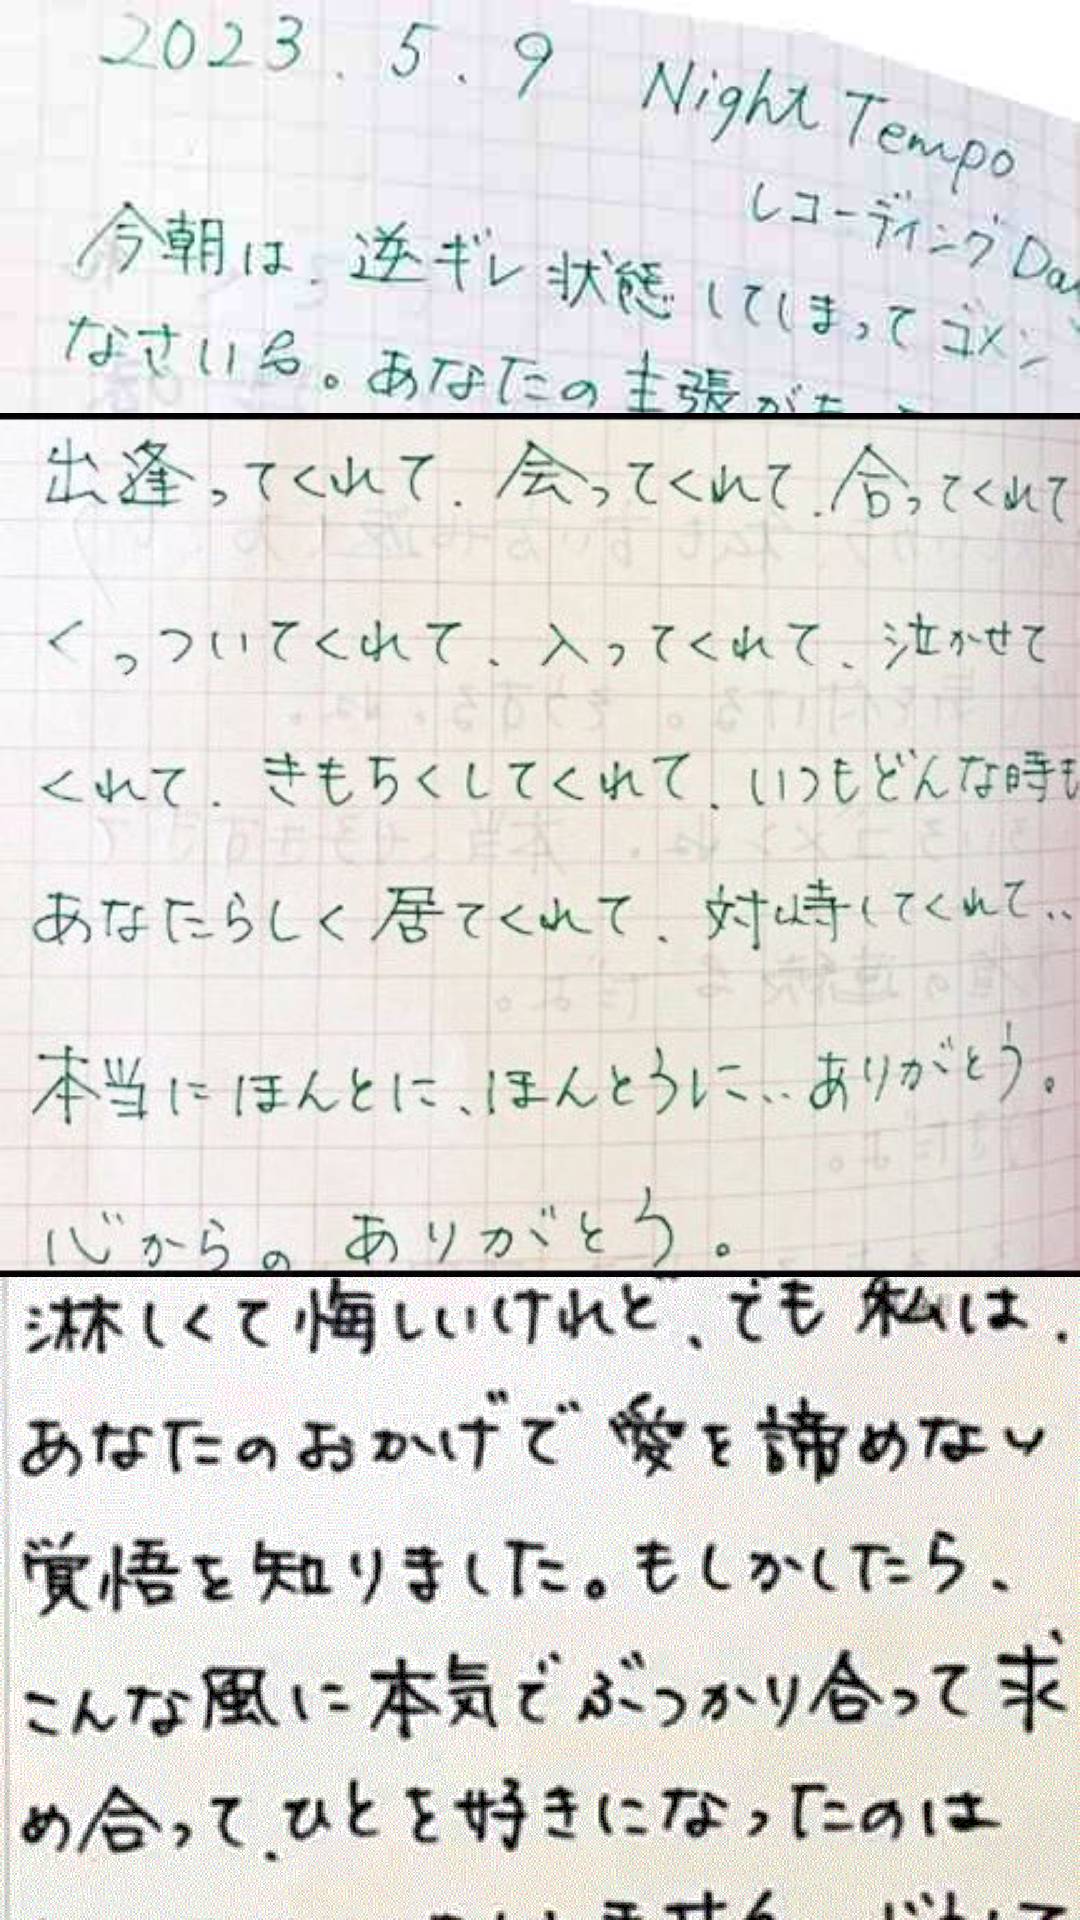 2023.5.9 Night Tempo
レコーディングDay
今朝は、逆ギレ状態してしまってゴメン
なさいね。あなたの主張が
出逢ってくれて、会ってくれて、合ってくれて
くっついてくれて、入ってくれて、泣かせて
くれて、きもちくしてくれて、いつもどんな時も
あなたらしく居てくれて、対峙してくれて、、
本当にほんとに、ほんとうに、、ありがとう。
心からの ありがとう。
淋しくて悔しいけれど、でも私は、
あなたのおかげで愛を諦めない
覚悟を知りました。もしかしたら、
こんな風に本気でぶつかり合って求
め合って、ひとを好きになったのは